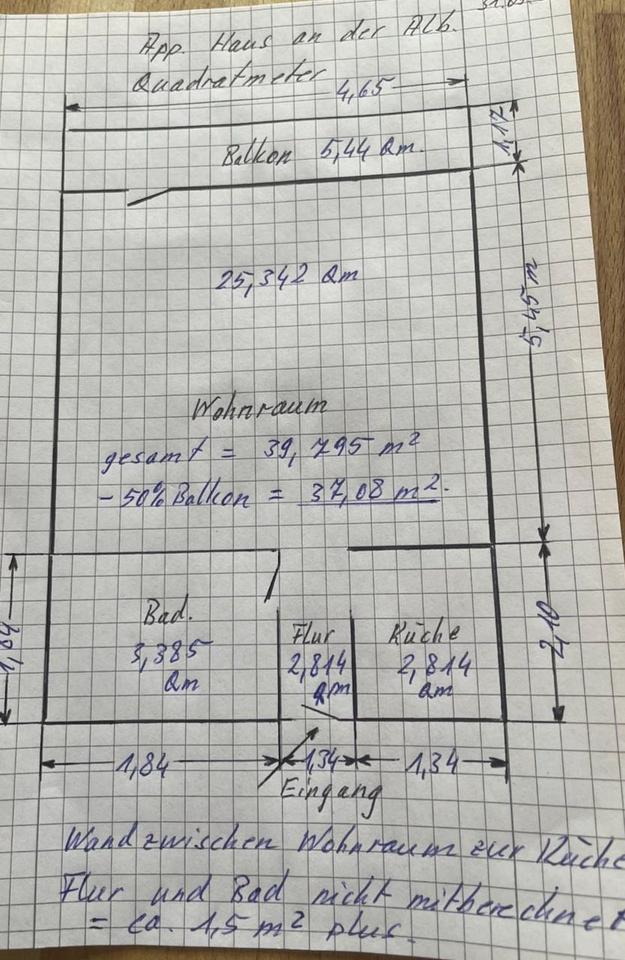 App. Haus an der Alb.
Quadratmeter
4,65
1,17
Balkon 5,44 Qm.
25,342 Qm
5,45 m
Wohnraum
gesamt = 39,795 m²
- 50% Balkon = 37,08 m².
1,84
Bad.
3,385
Qm
Flur
2,814
Qm
Küche
2,814
Qm
2,10
1,84
1,34
1,34
Eingang
Wand zwischen Wohnraum zur Küche
Flur und Bad nicht mitberechnet
= ca. 1,5 m² plus.